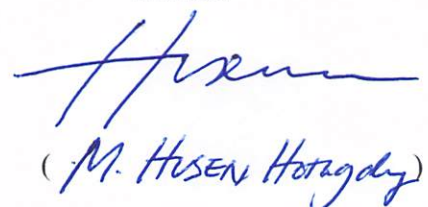 Husen
(M. HUSEN Hutagaluy)